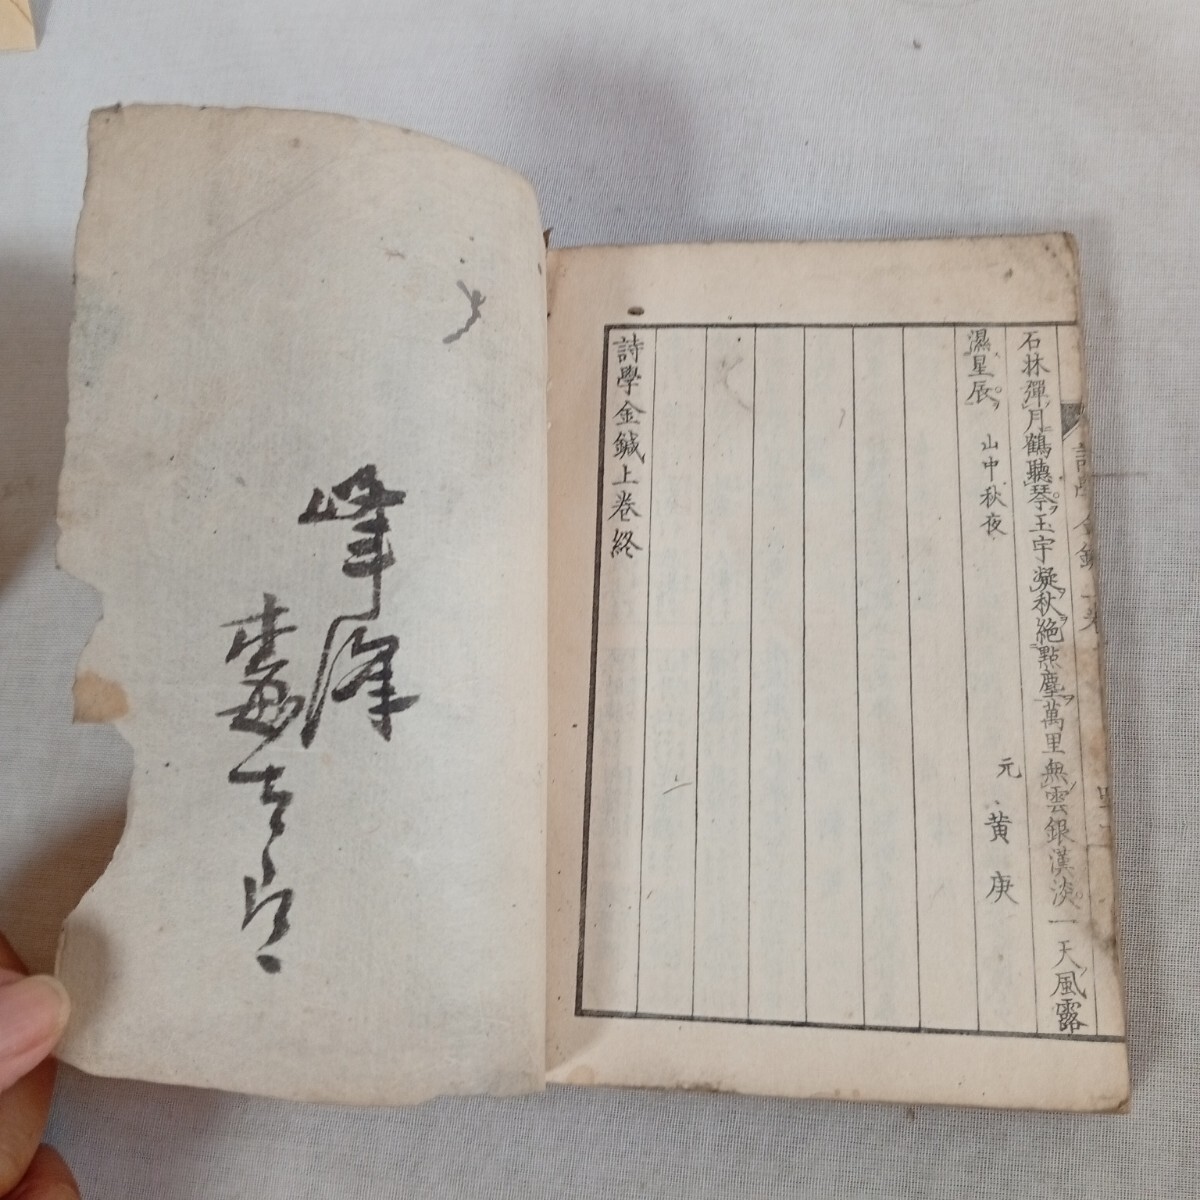 石林彈月鶴聽琴玉宇凝秋絕點塵萬里無雲銀漢淡一天風露
濕星辰 山中秋夜 元 黄庚
詩學金鍼上卷終
峯
太郎